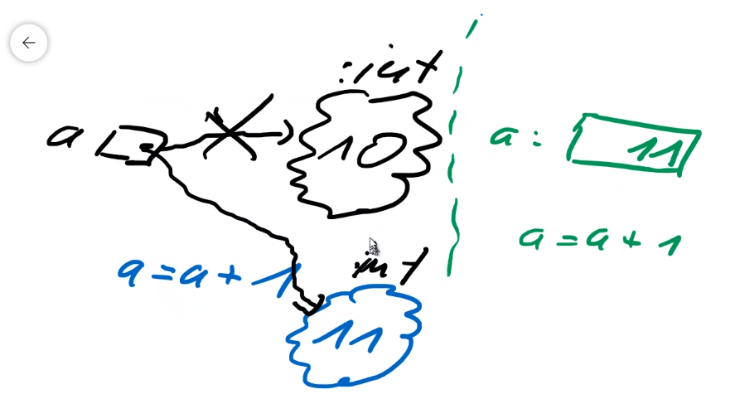 :int
a
10
a = a + 1
:int
11
a :
11
a = a + 1